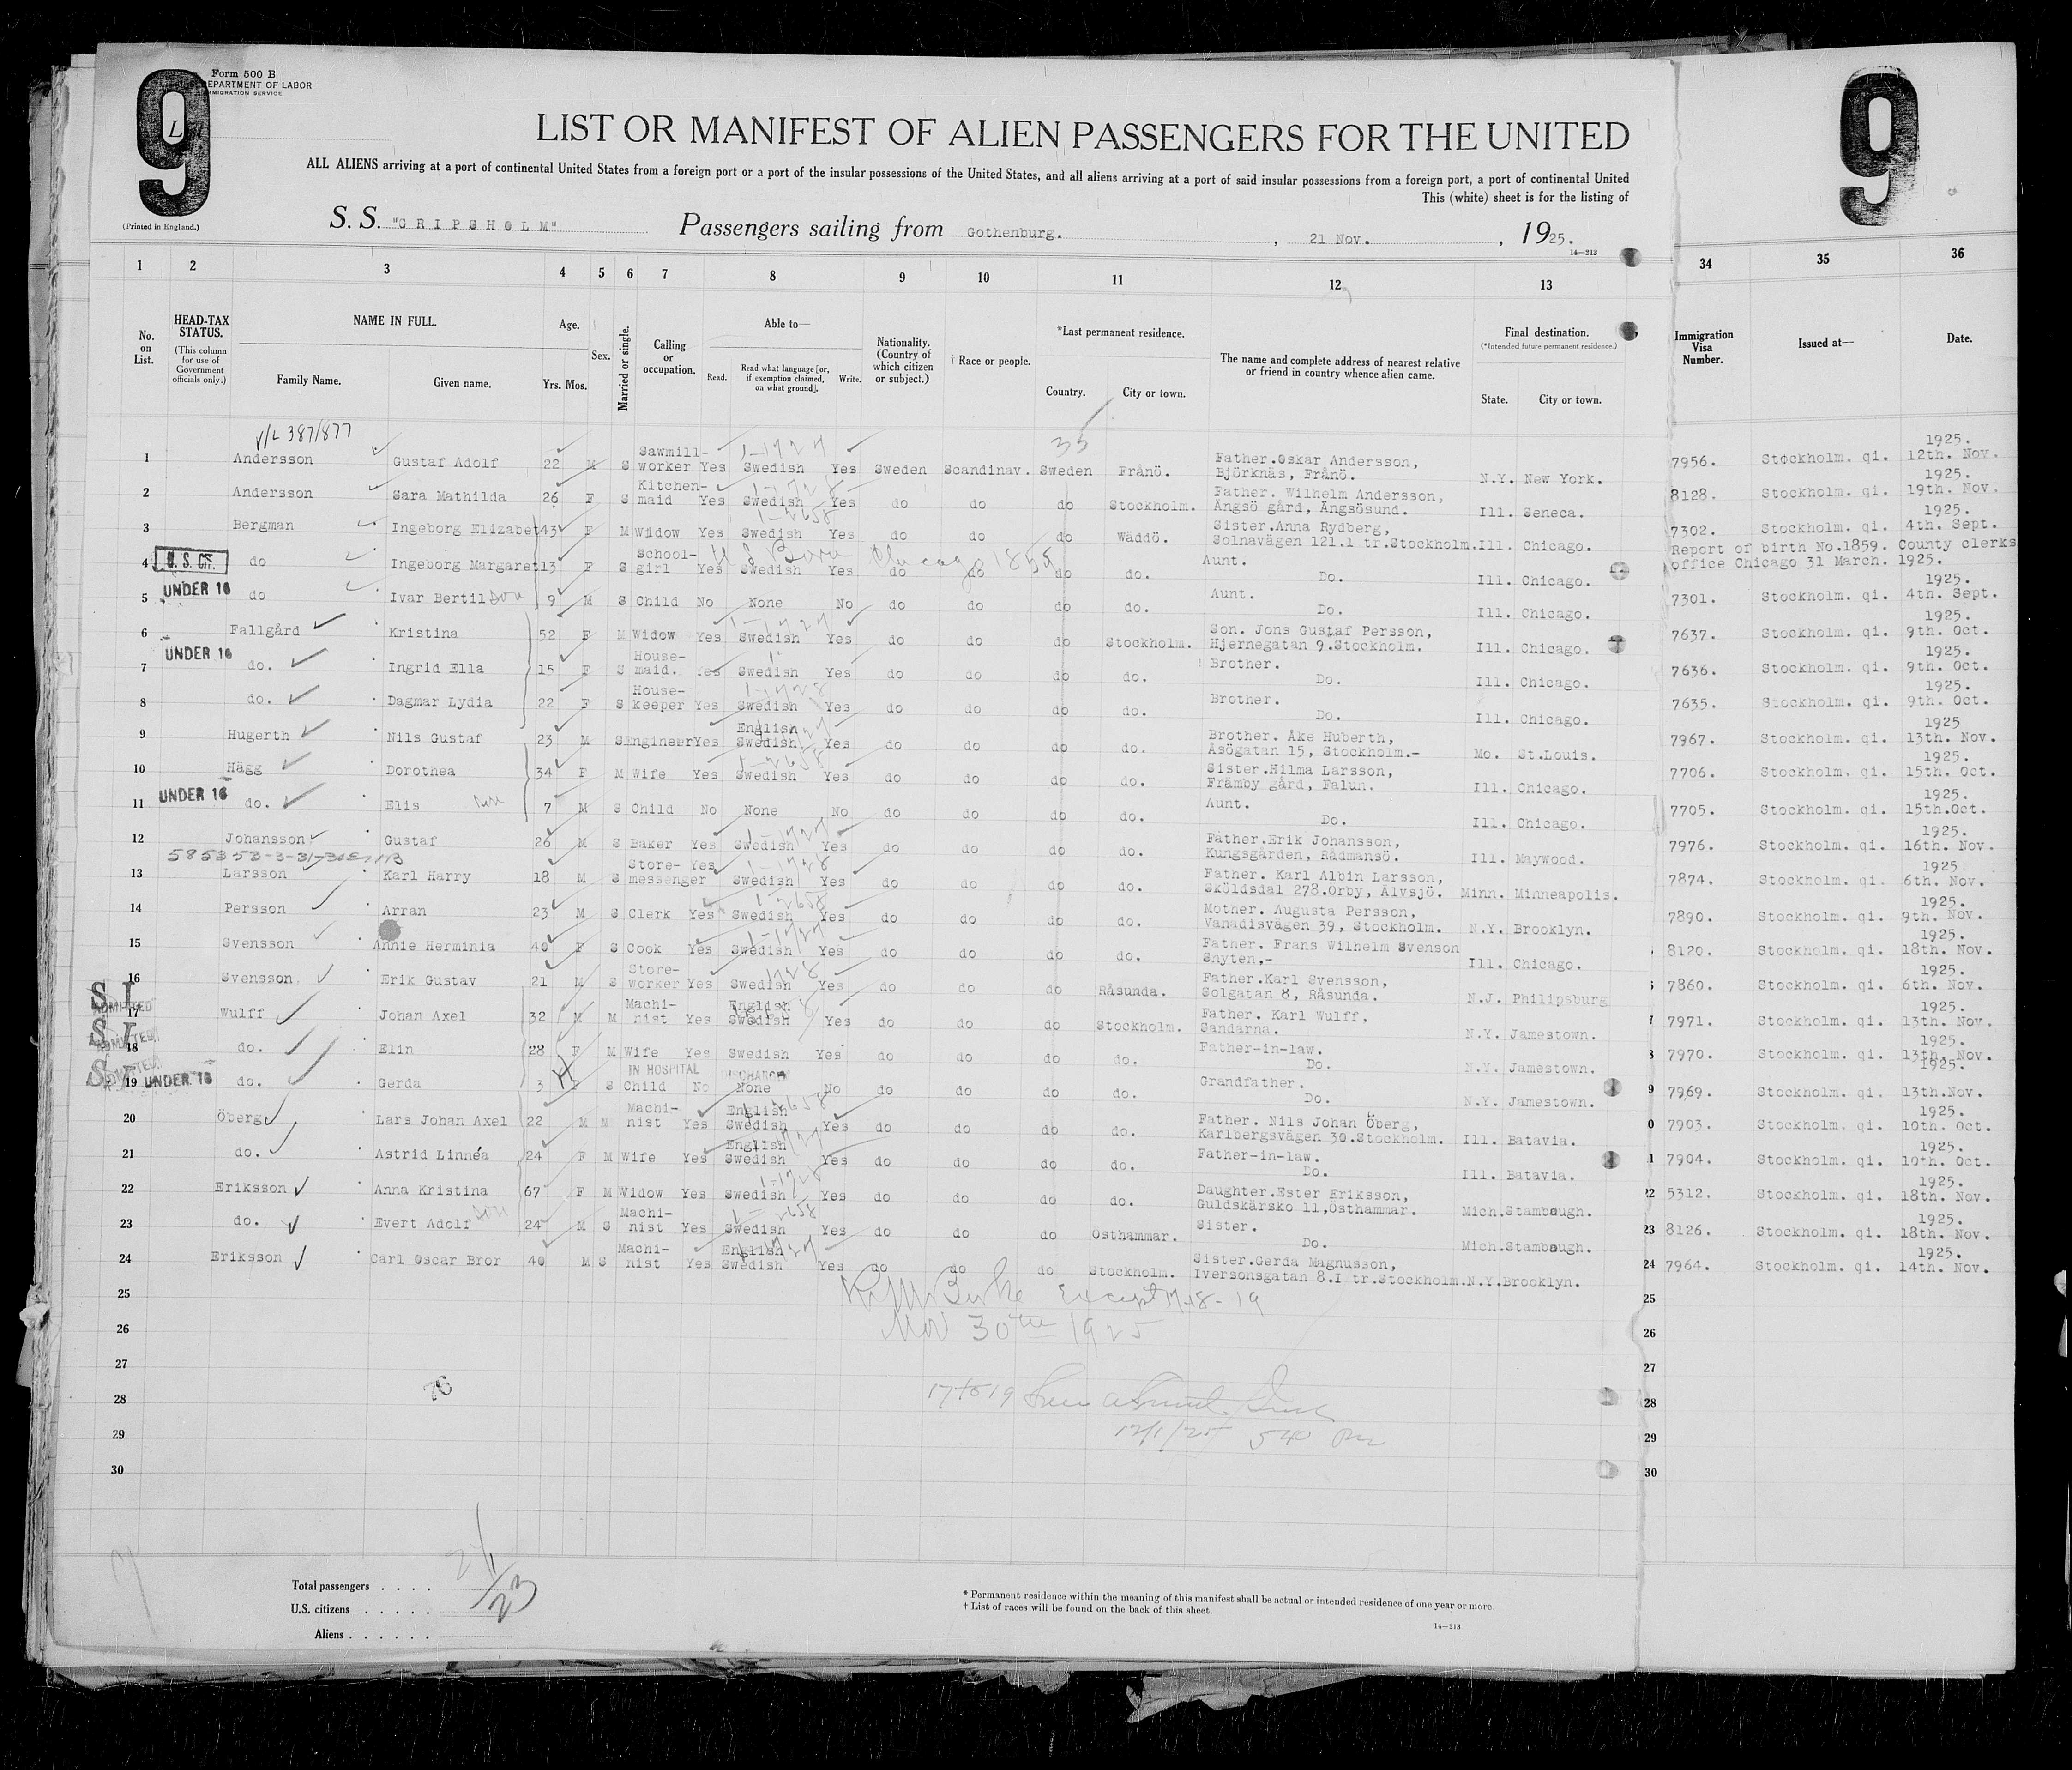 9
Form 500 B
DEPARTMENT OF LABOR
IMMIGRATION SERVICE
L
(Printed in England.)
LIST OR MANIFEST OF ALIEN PASSENGERS FOR THE UNITED
ALL ALIENS arriving at a port of continental United States from a foreign port or a port of the insular possessions of the United States, and all aliens arriving at a port of said insular possessions from a foreign port, a port of continental United
This (white) sheet is for the listing of
S. S. "GRIPSHOLM" Passengers sailing from Gothenburg. , 21 Nov. , 1925.
14—213
9
1 2 3 4 5 6 7 8 9 10 11 12 13 34 35 36
No. on List.
HEAD-TAX STATUS.
(This column for use of Government officials only.)
NAME IN FULL.
Family Name. Given name.
Age.
Yrs. Mos.
Sex.
Married or single.
Calling or occupation.
Able to—
Read. Read what language [or, if exemption claimed, on what ground]. Write.
Nationality. (Country of which citizen or subject.)
† Race or people.
*Last permanent residence.
Country. City or town.
The name and complete address of nearest relative or friend in country whence alien came.
Final destination.
(*Intended future permanent residence.)
State. City or town.
Immigration Visa Number.
Issued at—
Date.
V/L 387/877
1 Andersson Gustaf Adolf 22 M S Sawmill-worker Yes Swedish Yes Sweden Scandinav. Sweden Frånö. Father.Oskar Andersson, Björknäs, Frånö. N.Y. New York. 7956. Stockholm. qi. 1925. 12th. Nov.
2 Andersson Sara Mathilda 26 F S Kitchen-maid Yes Swedish Yes do do do Stockholm. Father. Wilhelm Andersson, Ängsö gård, Ängsösund. Ill. Seneca. 8128. Stockholm. qi. 1925. 19th. Nov.
3 Bergman Ingeborg Elizabet 43 F M Widow Yes Swedish Yes do do do Wäddö. Sister.Anna Rydberg, Solnavägen 121.1 tr.Stockholm. Ill. Chicago. 7302. Stockholm. qi. 1925. 4th. Sept.
4 U. S. CIT. do Ingeborg Margaret 13 F S School-girl Yes Swedish Yes do do do do. Aunt. Do. Ill. Chicago. Report of birth No.1859. County clerks office Chicago 31 March. 1925.
U S Born Chicago 1859
5 UNDER 16 do Ivar Bertil son 9 M S Child No None No do do do do. Aunt. Do. Ill. Chicago. 7301. Stockholm. qi. 1925. 4th. Sept.
6 Fallgård Kristina 52 F M Widow Yes Swedish Yes do do do Stockholm. Son. Jons Gustaf Persson, Hjernegatan 9.Stockholm. Ill. Chicago. 7637. Stockholm. qi. 1925. 9th. Oct.
7 UNDER 16 do. Ingrid Ella 15 F S House-maid. Yes Swedish Yes do do do do. Brother. Do. Ill. Chicago. 7636. Stockholm. qi. 1925. 9th. Oct.
8 do. Dagmar Lydia 22 F S House-keeper Yes Swedish Yes do do do do. Brother. Do. Ill. Chicago. 7635. Stockholm. qi. 1925. 9th. Oct.
9 Hugerth Nils Gustaf 23 M S Engineer Yes English Swedish Yes do do do do. Brother. Åke Huberth, Åsögatan 15, Stockholm.- Mo. St.Louis. 7967. Stockholm. qi. 1925 13th. Nov.
10 Hägg Dorothea 34 F M Wife Yes Swedish Yes do do do do. Sister.Hilma Larsson, Främby gård, Falun. Ill. Chicago. 7706. Stockholm. qi. 1925. 15th. Oct.
11 UNDER 16 do. Elis son 7 M S Child No None No do do do do. Aunt. Do. Ill. Chicago. 7705. Stockholm. qi. 1925. 15th.Oct.
12 Johansson Gustaf 26 M S Baker Yes Swedish Yes do do do do. Father.Erik Johansson, Kungsgården, Rådmansö. Ill. Maywood. 7976. Stockholm. qi. 1925. 16th. Nov.
13 Larsson Karl Harry 18 M S Store-messenger Yes Swedish Yes do do do do. Father. Karl Albin Larsson, Sköldsdal 278.Örby, Älvsjö. Minn. Minneapolis. 7874. Stockholm. qi. 1925 6th. Nov.
14 Persson Arran 23 M S Clerk Yes Swedish Yes do do do do. Mother. Augusta Persson, Vanadisvägen 39, Stockholm. N.Y. Brooklyn. 7890. Stockholm. qi. 1925. 9th. Nov.
15 Svensson Annie Herminia 40 F S Cook Yes Swedish Yes do do do do. Father. Frans Wilhelm Svenson Snyten,- Ill. Chicago. 8120. Stockholm. qi. 1925. 18th. Nov.
16 Svensson. Erik Gustav 21 M S Store-worker Yes Swedish Yes do do do Råsunda. Father.Karl Svensson, Solgatan 8, Råsunda. N.J. Philipsburg 7860. Stockholm. qi. 1925. 6th. Nov.
17 S I ADMITTED Wulff Johan Axel 32 M M Machi-nist Yes English Swedish Yes do do do Stockholm. Father. Karl Wulff, Sandarna. N.Y. Jamestown. 7971. Stockholm. qi. 1925. 13th. Nov.
18 S I ADMITTED do. Elin 28 F M Wife Yes Swedish Yes do do do do. Father-in-law. Do. N.Y. Jamestown. 7970. Stockholm. qi. 1925. 13th. Nov.
IN HOSPITAL DISCHARGED
19 S I ADMITTED UNDER 16 do. Gerda 3 F S Child No None No do do do do. Grandfather. Do. N.Y. Jamestown. 7969. Stockholm. qi. 1925. 13th.Nov.
20 Öberg Lars Johan Axel 22 M M Machi-nist Yes English Swedish Yes do do do do. Father. Nils Johan Öberg, Karlbergsvägen 30.Stockholm. Ill. Batavia. 7903. Stockholm. qi. 1925. 10th. Oct.
21 do. Astrid Linnéa 24 F M Wife Yes English Swedish Yes do do do do. Father-in-law. Do. Ill. Batavia. 7904. Stockholm. qi. 1925. 10th. Oct.
22 Eriksson Anna Kristina 67 F M Widow Yes Swedish Yes do do do do. Daughter.Ester Eriksson, Guldskärsko 11,Östhammar. Mich. Stambough. 5312. Stockholm. qi. 1925. 18th. Nov.
23 do. Evert Adolf son 24 M S Machi-nist Yes Swedish Yes do do do Östhammar. Sister. Do. Mich. Stambough. 8126. Stockholm. qi. 1925. 18th. Nov.
24 Eriksson Carl Oscar Bror 40 M S Machi-nist Yes English Swedish Yes do do do Stockholm. Sister.Gerda Magnusson, Iversonsgatan 8.I tr.Stockholm. N.Y. Brooklyn. 7964. Stockholm. qi. 1925. 14th. Nov.
25 Except 17-18-19 25
26 Nov 30th 1925 26
27 27
28 76 17 to 19 28
29 12/1/25 540 Pm 29
30 30
Total passengers . . . .
U.S. citizens . . . . . 23
Aliens . . . . . .
* Permanent residence within the meaning of this manifest shall be actual or intended residence of one year or more.
† List of races will be found on the back of this sheet.
14—213